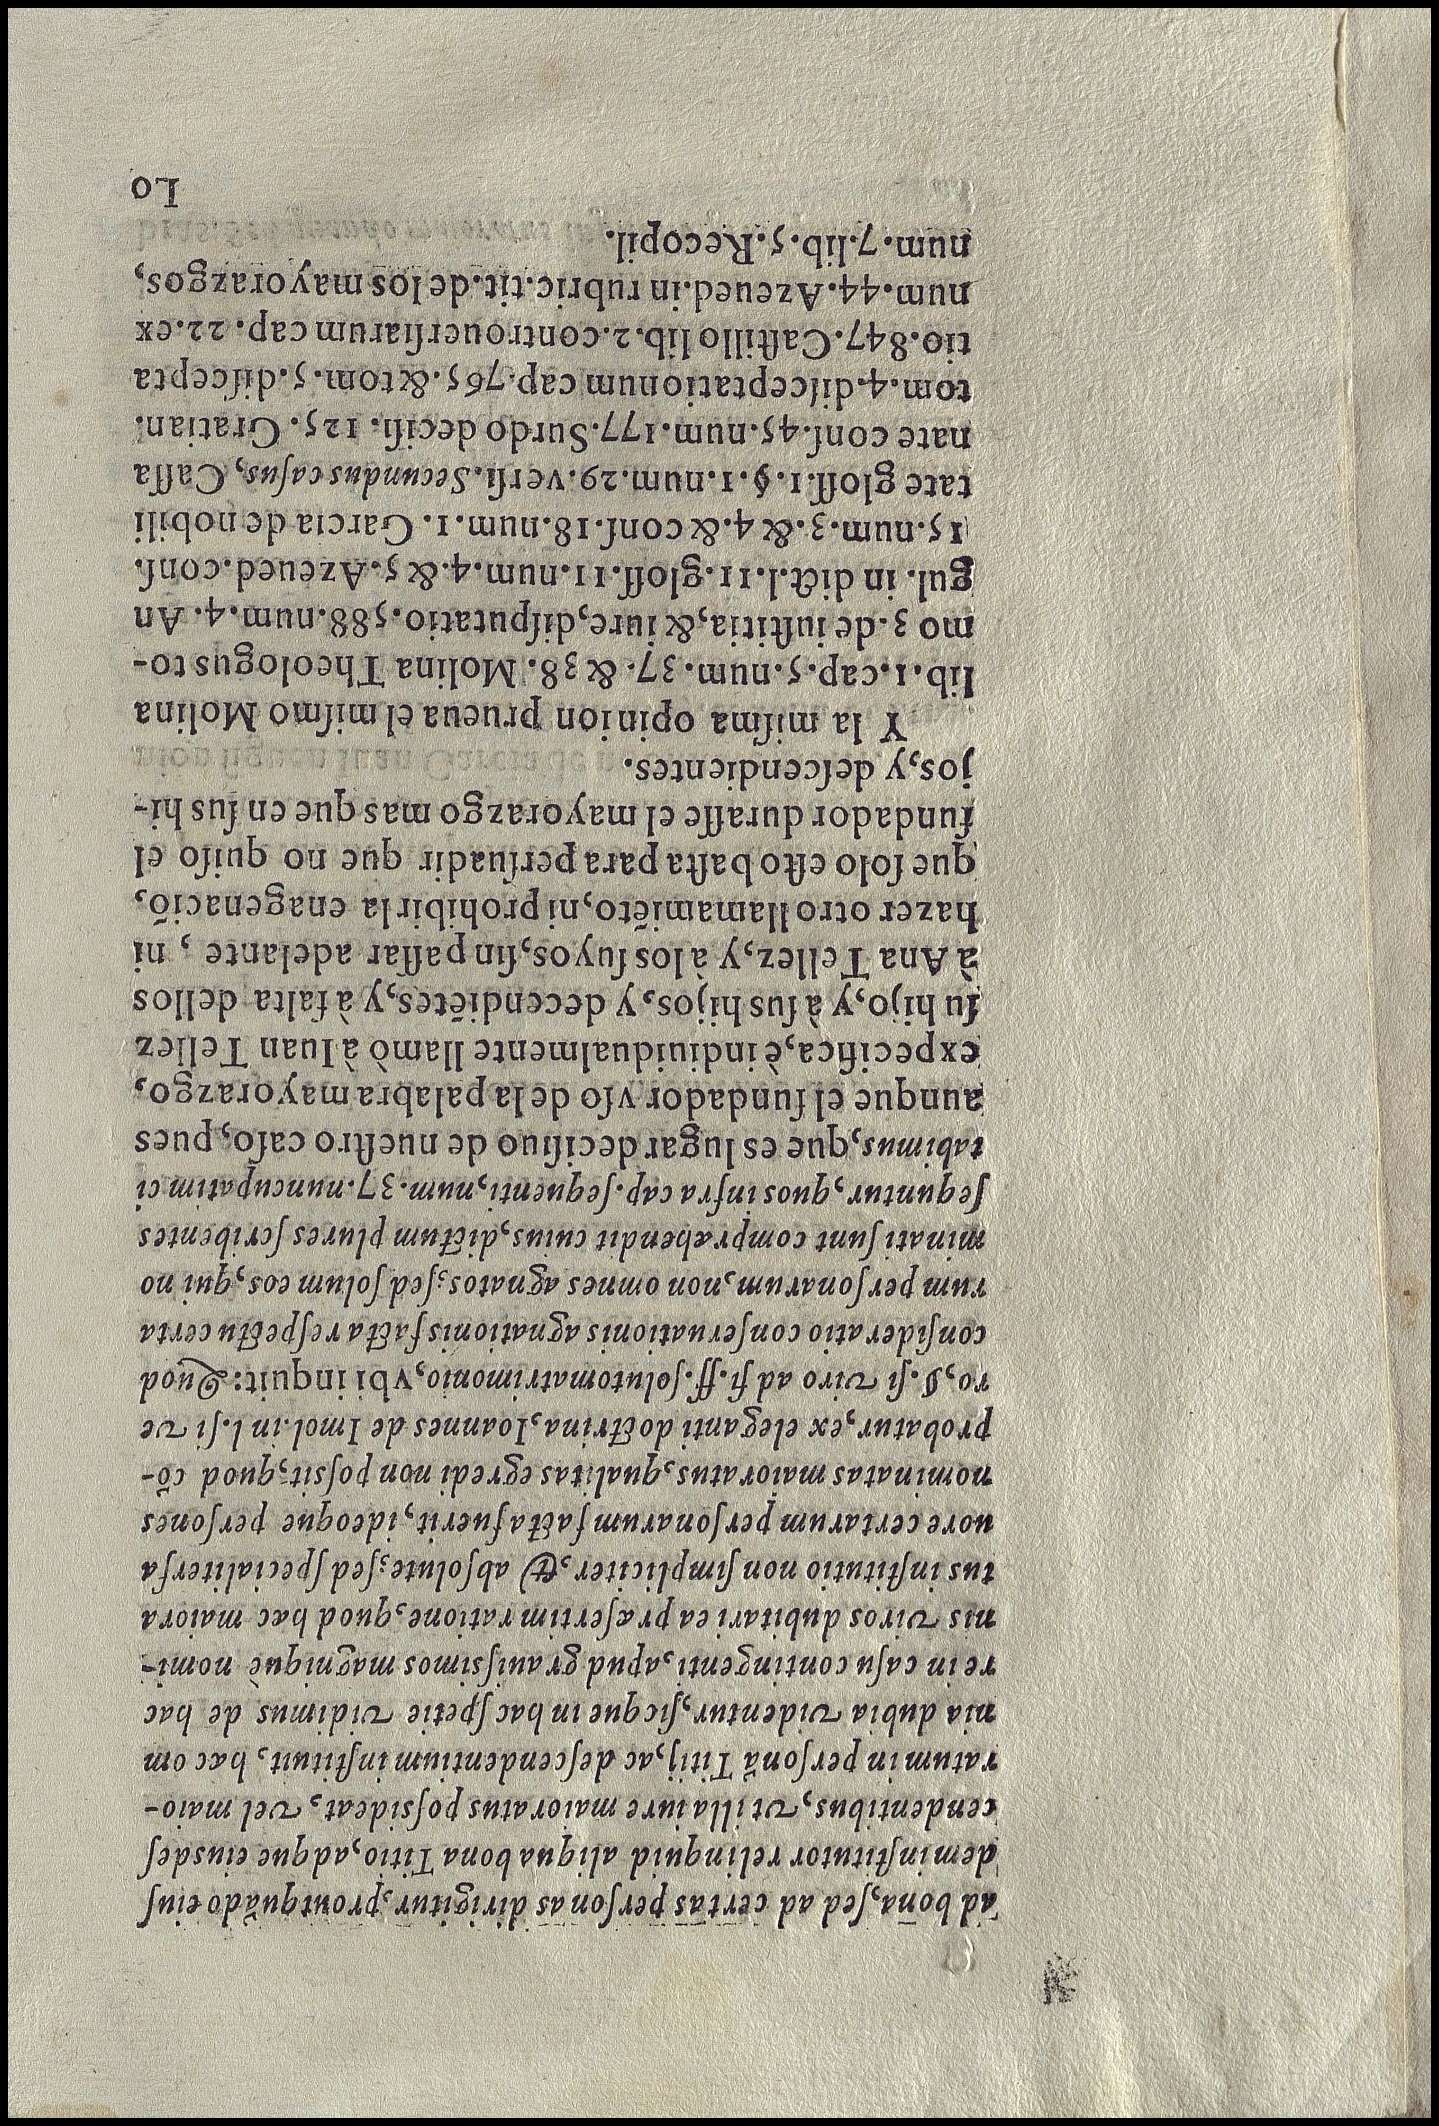 ad bona, ſed ad certas perſonas dirigitur, prout quãdo eiuſ
dem inſtitutor relinquid aliqua bona Titio, adque eiusdeſ
cendentibus, vt illa iure maioratus poſsideat, vel maio-
ratum in perſonã Titij, ac deſcendentium inſtituit, hæc om
nia dubia videntur, ſicque in hac ſpetie vidimus de hac
re in caſu contingenti, apud grauiſsimos magnique nomi-
nis viros dubitari ea præſertim ratione, quod hæc maiora
tus inſtitutio non ſimpliciter, & abſolute; ſed ſpecialiter fa
uore certarum perſonarum facta fuerit, ideoque perſones
nominatas maioratus, qualitas egredi non poſsit; quod cõ-
probatur, ex eleganti doctrina, Ioannes de Imol. in l. ſi ve
ro, §. ſi viro ad fi. ff. ſoluto matrimonio, vbi inquit: Quod
conſideratio conſeruationis agnationis facta reſpectu certa
rum perſonarum, non omnes agnatos; ſed ſolum eos, qui no
minati ſunt compræhendit cuius, dictum plures ſcribentes
ſequntur, quos infra cap. ſequenti, num. 37. nuncupatim ci
tabimus, que es lugar deciſiuo de nueſtro caſo, pues
aunque el fundador vſo de la palabra mayorazgo,
expecifica, è indiuidualmente llamò à Iuan Tellez
ſu hijo, y à ſus hijos, y decendiẽtes, y à falta dellos
à Ana Tellez, y à los ſuyos, ſin paſſar adelante, ni
hazer otro llamamiẽto, ni prohibir la enagenaciõ,
que ſolo eſto baſta para perſuadir que no quiſo el
fundador duraſſe el mayorazgo mas que en ſus hi-
jos, y deſcendientes.
Y la miſma opinion prueua el miſmo Molina
lib. 1. cap. 5. num. 37. & 38. Molina Theologus to-
mo 3. de iuſtitia, & iure, diſputatio. 588. num. 4. An
gul. in dict. l. 11. gloſſ. 11. num. 4. & 5. Azeued. conſ.
15. num. 3. & 4. & conſ. 18. num. 1. Garcia de nobili
tate gloſſ. 1. §. 1. num. 29. verſi. Secundus caſus, Caſſa
nate conſ. 45. num. 177. Surdo deciſi. 125. Gratian.
tom. 4. diſceptationum cap. 765. & tom. 5. diſcepta
tio. 847. Caſtillo lib. 2. controuerſiarum cap. 22. ex
num. 44. Azeued. in rubric. tit. de los mayorazgos,
num. 7. lib. 5. Recopil.
Lo